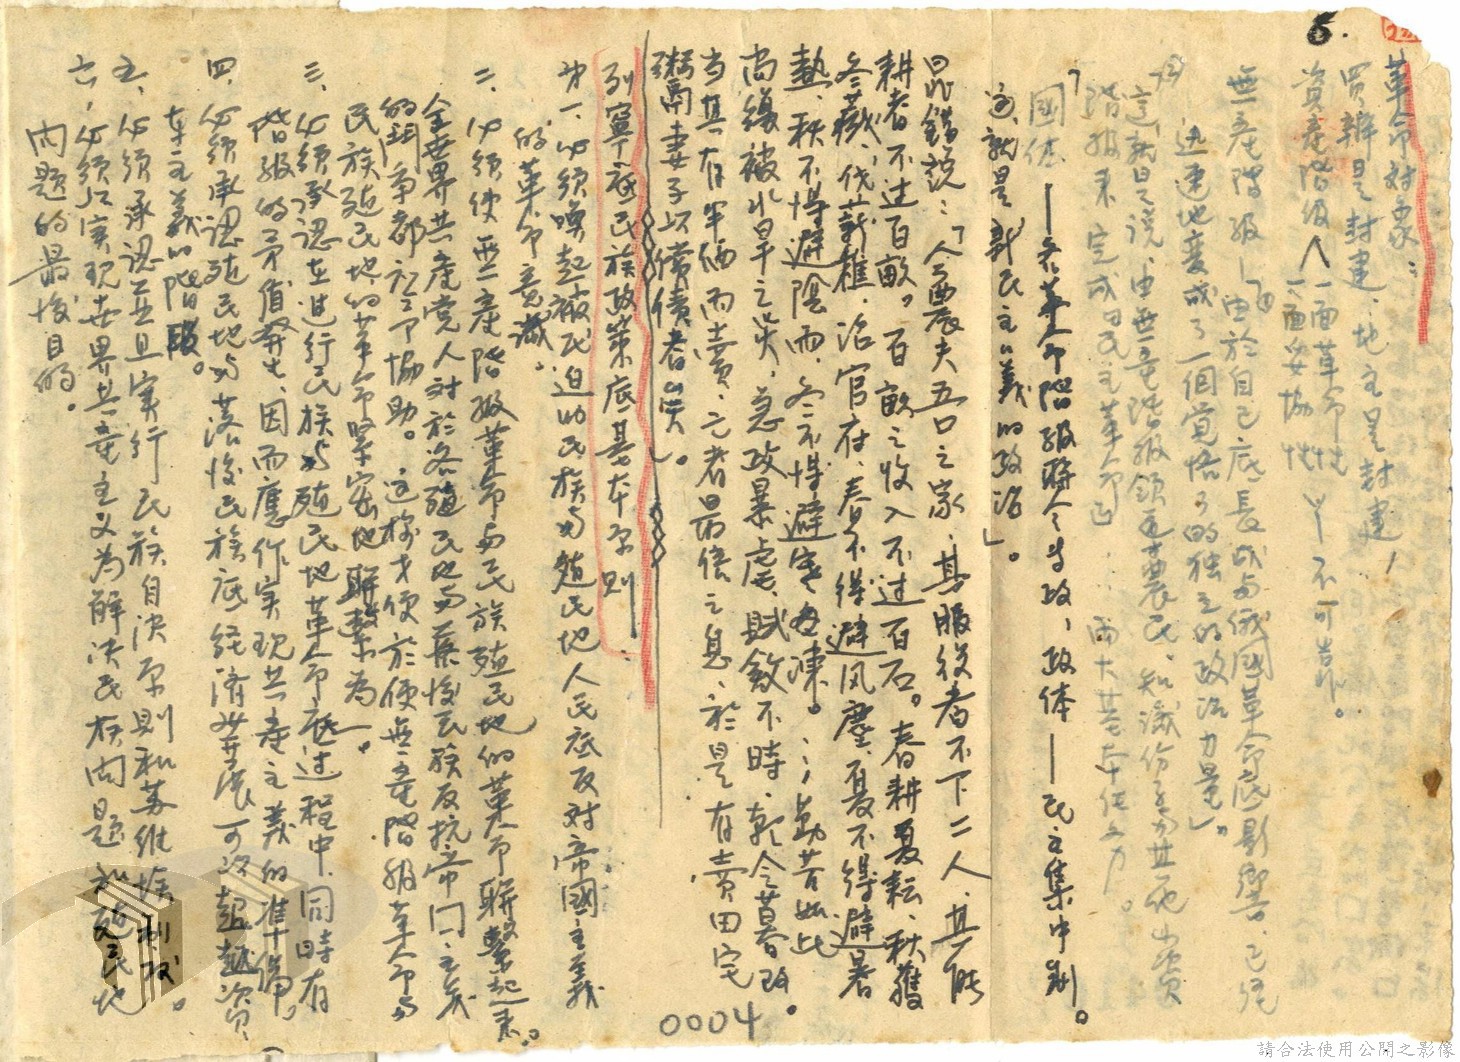 5.
革命对象：
買辦是封建，地主是封建，
資產階級〈一面革命性
一面妥協性
不可靠。
無產階級—「由於自己底長成与俄國革命底影響，已经
迅速地变成了一個覚悟了的独立的政治力量」。
這就是說，由無產階級領導農民、知識份子与其他小資
階級来完成
民主革命
兩大基本任務。
「國体—各革命階級聯合專政，政体—民主集中制。
這就是新民主主義的政治」。
晁錯說：「今農夫五口之家，其服役者不下二人，其能
耕者不过百畝。百畝之收入不过百石。春耕夏耘，秋獲
冬藏，伐薪樵，治官府，春不得避风塵，夏不得避暑
熱，秋不得避陰雨，冬不得避寒凍。…勤苦如此
尚復被水旱之災，急政暴虐，賦斂不時，朝令暮改
当其有半価而賣，亡者取倍之息，於是有賣田宅
鬻妻子以償債者矣」。
列寧底民族政策底基本原則
第一、必須喚起被压迫的民族与殖民地人民底反对帝國主義
的革命意識。
二、必須使無產階級革命与民族殖民地的革命聯繫起来。
全世界共產党人对於各殖民地与落後民族反抗帝國主義
的鬥争都
予協助。这様才便於使無產階級革命与
民族殖民地的革命緊密地聯繫為一。
三、必須承認在進行民族与殖民地革命底过程中，同時有
階級的矛盾發生，因而應作实现共產主義的準備。
四、必須承認殖民地与落後民族底経済發展可以超越資
本主義的階段。
五、必須承認並且实行民族自决原則和苏维埃制度。
六、必須以实现世界共產主义為解决民族問題和殖民地
問題的最後目的。
0004
請合法使用公開之影像